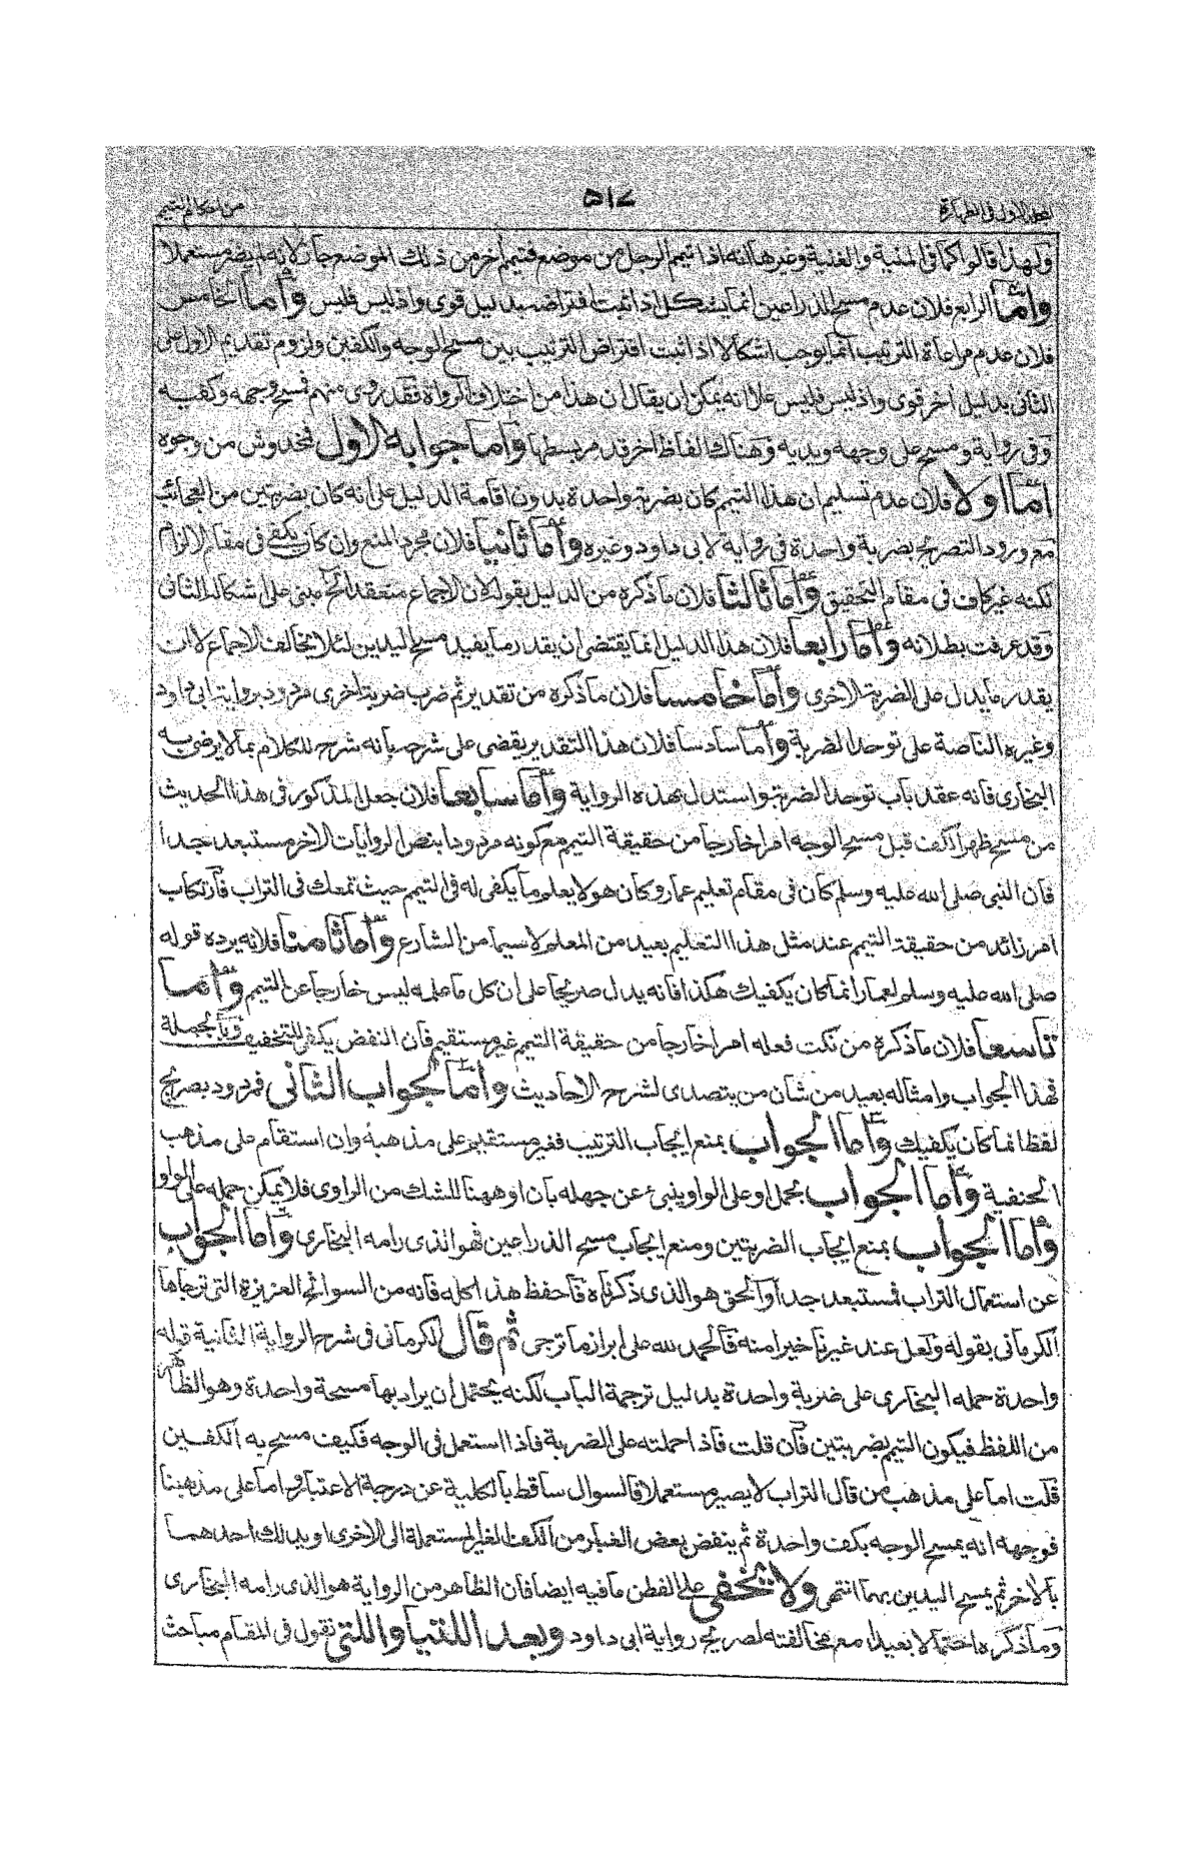 الفصل الاول فى الطهارة
٥١٧
من احكام التيمم
ولهذا قالوا كما فى المنية والغنية وغيرها انه اذا تيمم الرجل من موضع فتيمم اخر من ذلك الموضع جاز لانه لم يصر مستعملا
واما الرابع فلان عدم مسح الذراعين انما يشكل اذا ثبت افتراضه بدليل قوى واذ ليس فليس واما الخامس
فلان عدم مراعاة الترتيب انما يوجب اشكالا اذا ثبت افتراض الترتيب بين مسح الوجه والكفين ولزوم تقديم الاول على
الثانى بدليل اخر قوى واذ ليس فليس على انه يمكن ان يقال ان هذا من اختلاف الرواة فقد روى منهم فمسح وجهه وكفيه
وفى رواية ومسح على وجهه ويديه وهناك الفاظ اخر قد مر بسطها واما جوابه الاول فمخدوش من وجوه
اما اولا فلان عدم تسليم ان هذا التيمم كان بضربة واحدة بدون اقامة الدليل على انه كان بضربتين من العجائب
مع ورود التصريح بضربة واحدة فى رواية لابى داود وغيره واما ثانيا فلان مجرد المنع وان كان يكفى فى مقام الالزام
لكنه غير كاف فى مقام التحقيق واما ثالثا فلان ما ذكره من الدليل بقوله لان الاجماع منعقد الخ مبنى على اشكاله الثانى
وقد عرفت بطلانه واما رابعا فلان هذا الدليل انما يقتضى ان يقدر ما يفيد مسح اليدين لئلا يخالف الاجماع لا ان
يقدر ما يدل على الضربة الاخرى واما خامسا فلان ما ذكره من تقدير ثم ضرب ضربة اخرى مردود برواية ابى داود
وغيره الناصة على توحد الضربة واما سادسا فلان هذا التقدير يقضى على شرحه بانه شرح للكلام بما لا يرضى به
البخارى فانه عقد باب توحد الضربة واستدل بهذه الرواية واما سابعا فلان جعل المذكور فى هذا الحديث
من مسح ظهر الكف قبل مسح الوجه امرا خارجا من حقيقة التيمم مع كونه مردودا بنص الروايات الاخر مستبعد جدا
فان النبى صلى الله عليه وسلم كان فى مقام تعليم عمار وكان هو لا يعلم ما يكفى له فى التيمم حيث تمعك فى التراب فارتكاب
امر زائد من حقيقة التيمم عند مثل هذا التعليم بعيد من المعلم لا سيما من الشارع واما ثامنا فلانه يرده قوله
صلى الله عليه وسلم لعمار انما كان يكفيك هكذا فانه يدل صريحا على ان كل ما علمه ليس خارجا عن التيمم واما
تاسعا فلان ما ذكره من نكت فعله امرا خارجا من حقيقة التيمم غير مستقيم فان النفض يكفى للتخفيف وبالجملة
فهذا الجواب وامثاله بعيد من شان من يتصدى لشرح الاحاديث واما الجواب الثانى فمردود بصريح
لفظ انما كان يكفيك واما الجواب بمنع ايجاب الترتيب فغير مستقيم على مذهبه وان استقام على مذهب
الحنفية واما الجواب بحمل او على الواو ينبئ عن جهله بان او ههنا للشك من الراوى فلا يمكن حمله على الواو
واما الجواب بمنع ايجاب الضربتين ومنع ايجاب مسح الذراعين فهو الذى رامه البخارى واما الجواب
عن استعمال التراب فمستبعد جدا والحق هو الذى ذكرناه فاحفظ هذا كله فانه من السوانح العزيزة التى ترجاها
الكرمانى بقوله ولعل عند غيرنا خيرا منه فالحمد لله على ابراز ما ترجى ثم قال الكرمانى فى شرح الرواية الثانية قوله
واحدة حمله البخارى على ضربة واحدة بدليل ترجمة الباب لكنه يحتمل ان يراد بها مسحة واحدة وهو الظاهر
من اللفظ فيكون التيمم بضربتين فان قلت فاذا حملته على الضربة فاذا استعمل فى الوجه فكيف مسح به الكفين
قلت اما على مذهب من قال التراب لا يصير مستعملا فالسوال ساقط بالكلية عن درجة الاعتبار واما على مذهبنا
فوجهه انه يمسح الوجه بكف واحدة ثم ينفض بعض الغبار من الكف الغير المستعملة الى الاخرى او يدلك احدهما
بالاخر ثم يمسح اليدين بهما انتهى ولا يخفى على الفطن ما فيه ايضا فان الظاهر من الرواية هو الذى رامه البخارى
وما ذكره احتمالا بعيدا مع مخالفته لصريح رواية ابى داود وبعد اللتيا واللتى نقول فى المقام مباحث